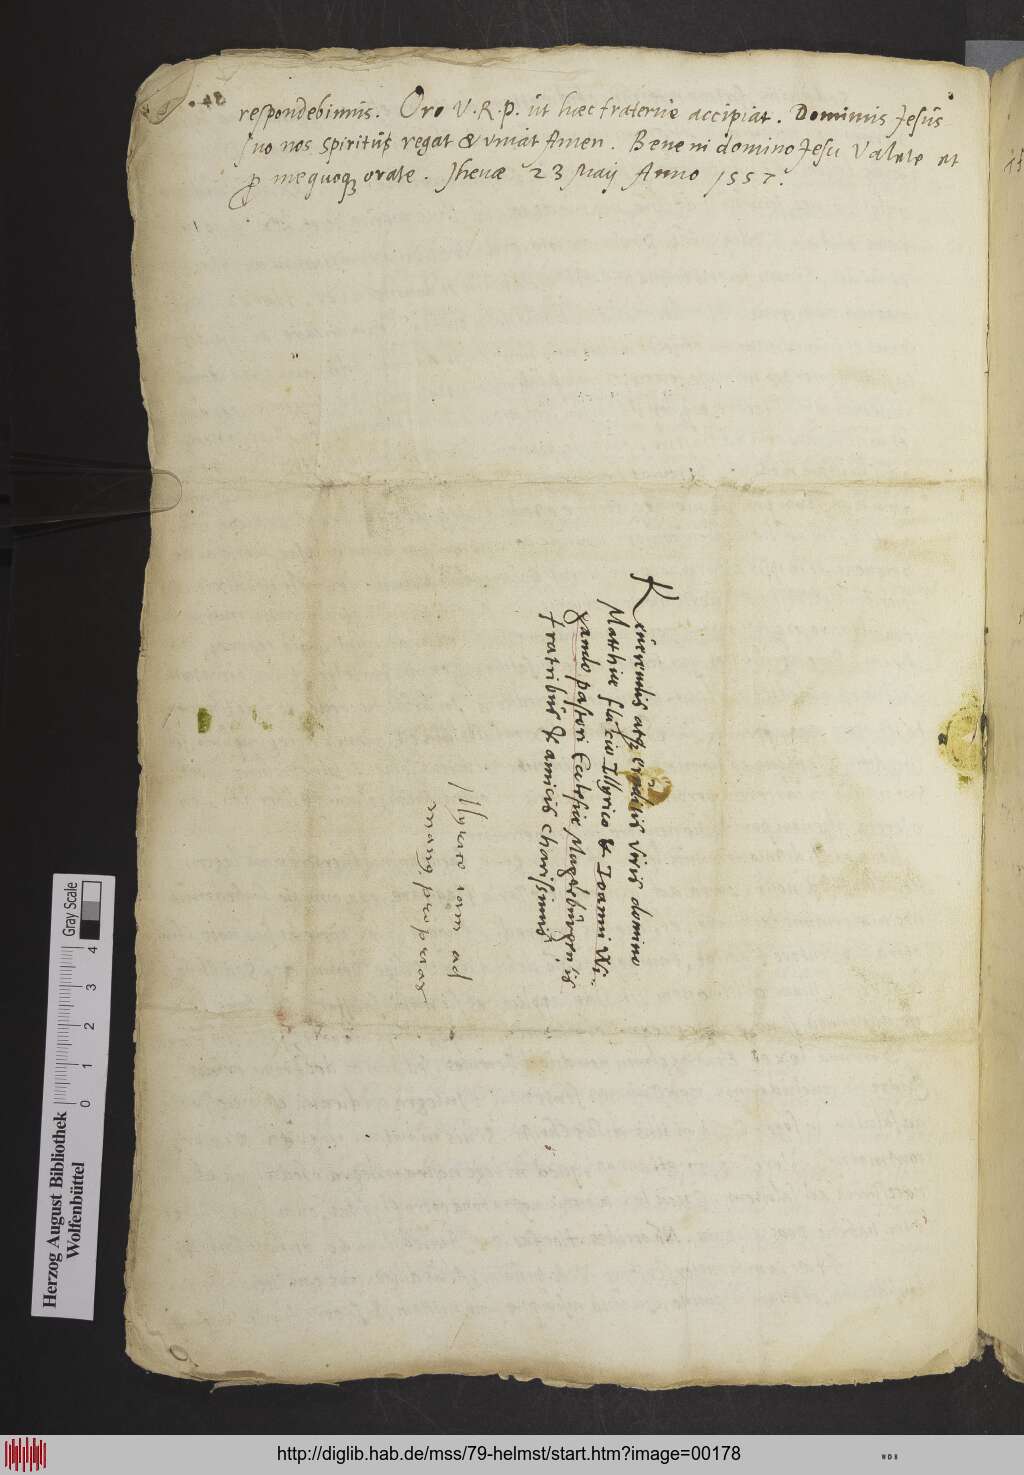 respondebimus. Oro V.R.P. ut hæc fraterne accipiat. Dominus Jesus
suo nos spiritu regat & vniat Amen. Bene in domino Jesu Valete et
ꝓ me quoqꝫ orate. Jhenæ 23 Maij Anno 1557.
Reuerendis atqꝫ eruditis viris domino
Matthiæ flacio Illyrico & Ioanni Wi-
gando pastori Ecclesiæ Magdeburgensis
fratribus & amicis charissimis.
Illyrico iam ad
manꝯ proprias
Herzog August Bibliothek
Wolfenbüttel
0 1 2 3 4
Gray Scale
http://diglib.hab.de/mss/79-helmst/start.htm?image=00178